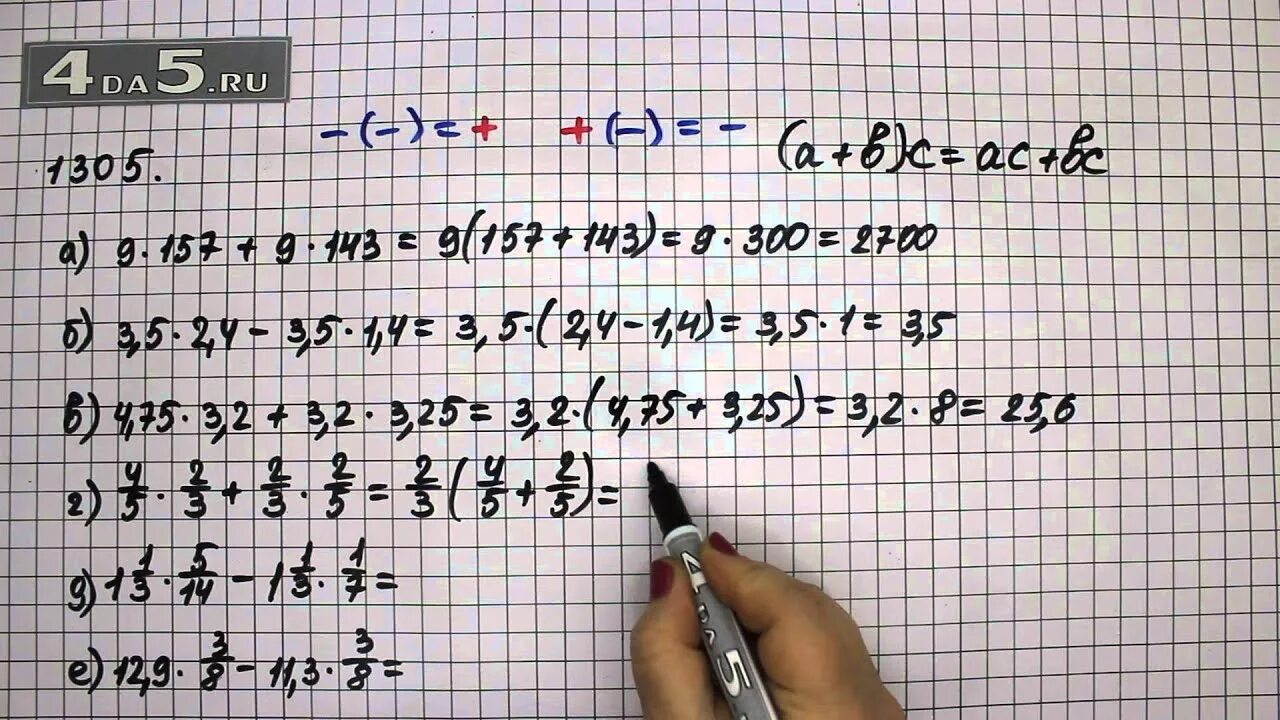 4DA5.RU
-(-)=+ +(-)=-
(a+b)c=ac+bc
1305.
а) 9·157+9·143=9(157+143)=9·300=2700
б) 3,5·2,4-3,5·1,4=3,5·(2,4-1,4)=3,5·1=3,5
в) 4,75·3,2+3,2·3,25=3,2·(4,75+3,25)=3,2·8=25,6
г) 4/5·2/3+2/3·2/5=2/3(4/5+2/5)=
д) 1 1/3·5/14-1 1/3·1/7=
е) 12,9·3/8-11,3·3/8=
4DA5